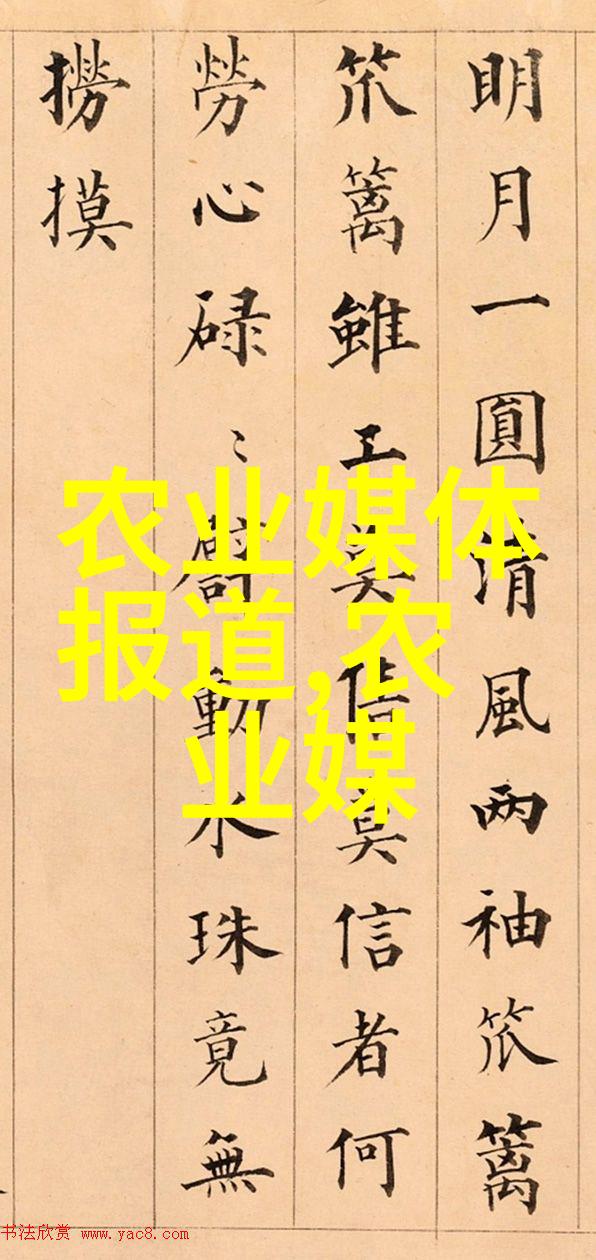 明月一圓清風两袖笊篱
笊篱雖工莫信莫信者何
勞心碌〻動水珠竟無
撈摸
农业媒体
报道,农
业媒
书法欣赏 www.yac8.com